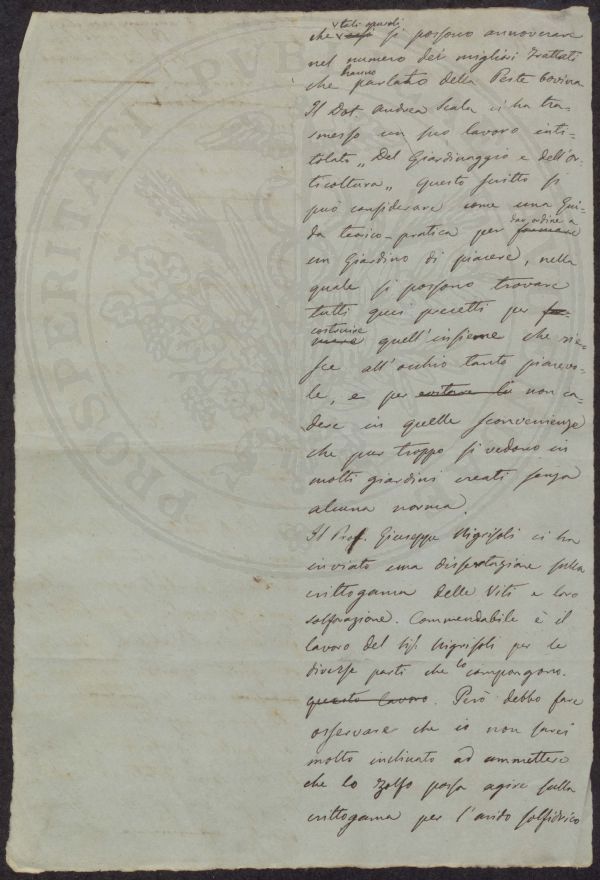 tali opuscoli
che si possono annoverare
nel numero dei migliori trattati
hanno
che parlato della Peste bovina
Il Dot. Andrea Scala ci ha tra-
smesso un suo lavoro inti-
tolato „ Del Giardinaggio e dell'or-
ticoltura „ questo scritto si
può considerare come una Gui-
da teorico-pratica per formare
dar ordine a
un Giardino di piacere, nella
quale si possono trovare
tutti quei precetti per
costruire
quell'insieme che rie-
sce all'occhio tanto piacevo-
le, e per evitare di non ca-
dere in quelle sconvenienze
che pur troppo si vedono in
molti giardini creati senza
alcuna norma.
Il Prof. Giuseppe Nigrisoli ci ha
inviato una dissertazione sulla
crittogama delle Viti e loro
solforazione. Commendabile è il
lavoro del Nigrisoli per le
diverse parti che lo compongono.
questo lavoro. Però debbo fare
osservare che io non sarei
molto inclinato ad ammettere
che lo Zolfo possa agire sulla
crittogama per l'acido solfidrico
PROSPERITATI PVB